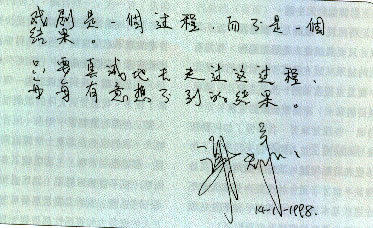 戏剧是一個过程，而不是一個
结果。
只要真诚地去走过这过程、
每每有意想不到的结果。
14-1-1998.